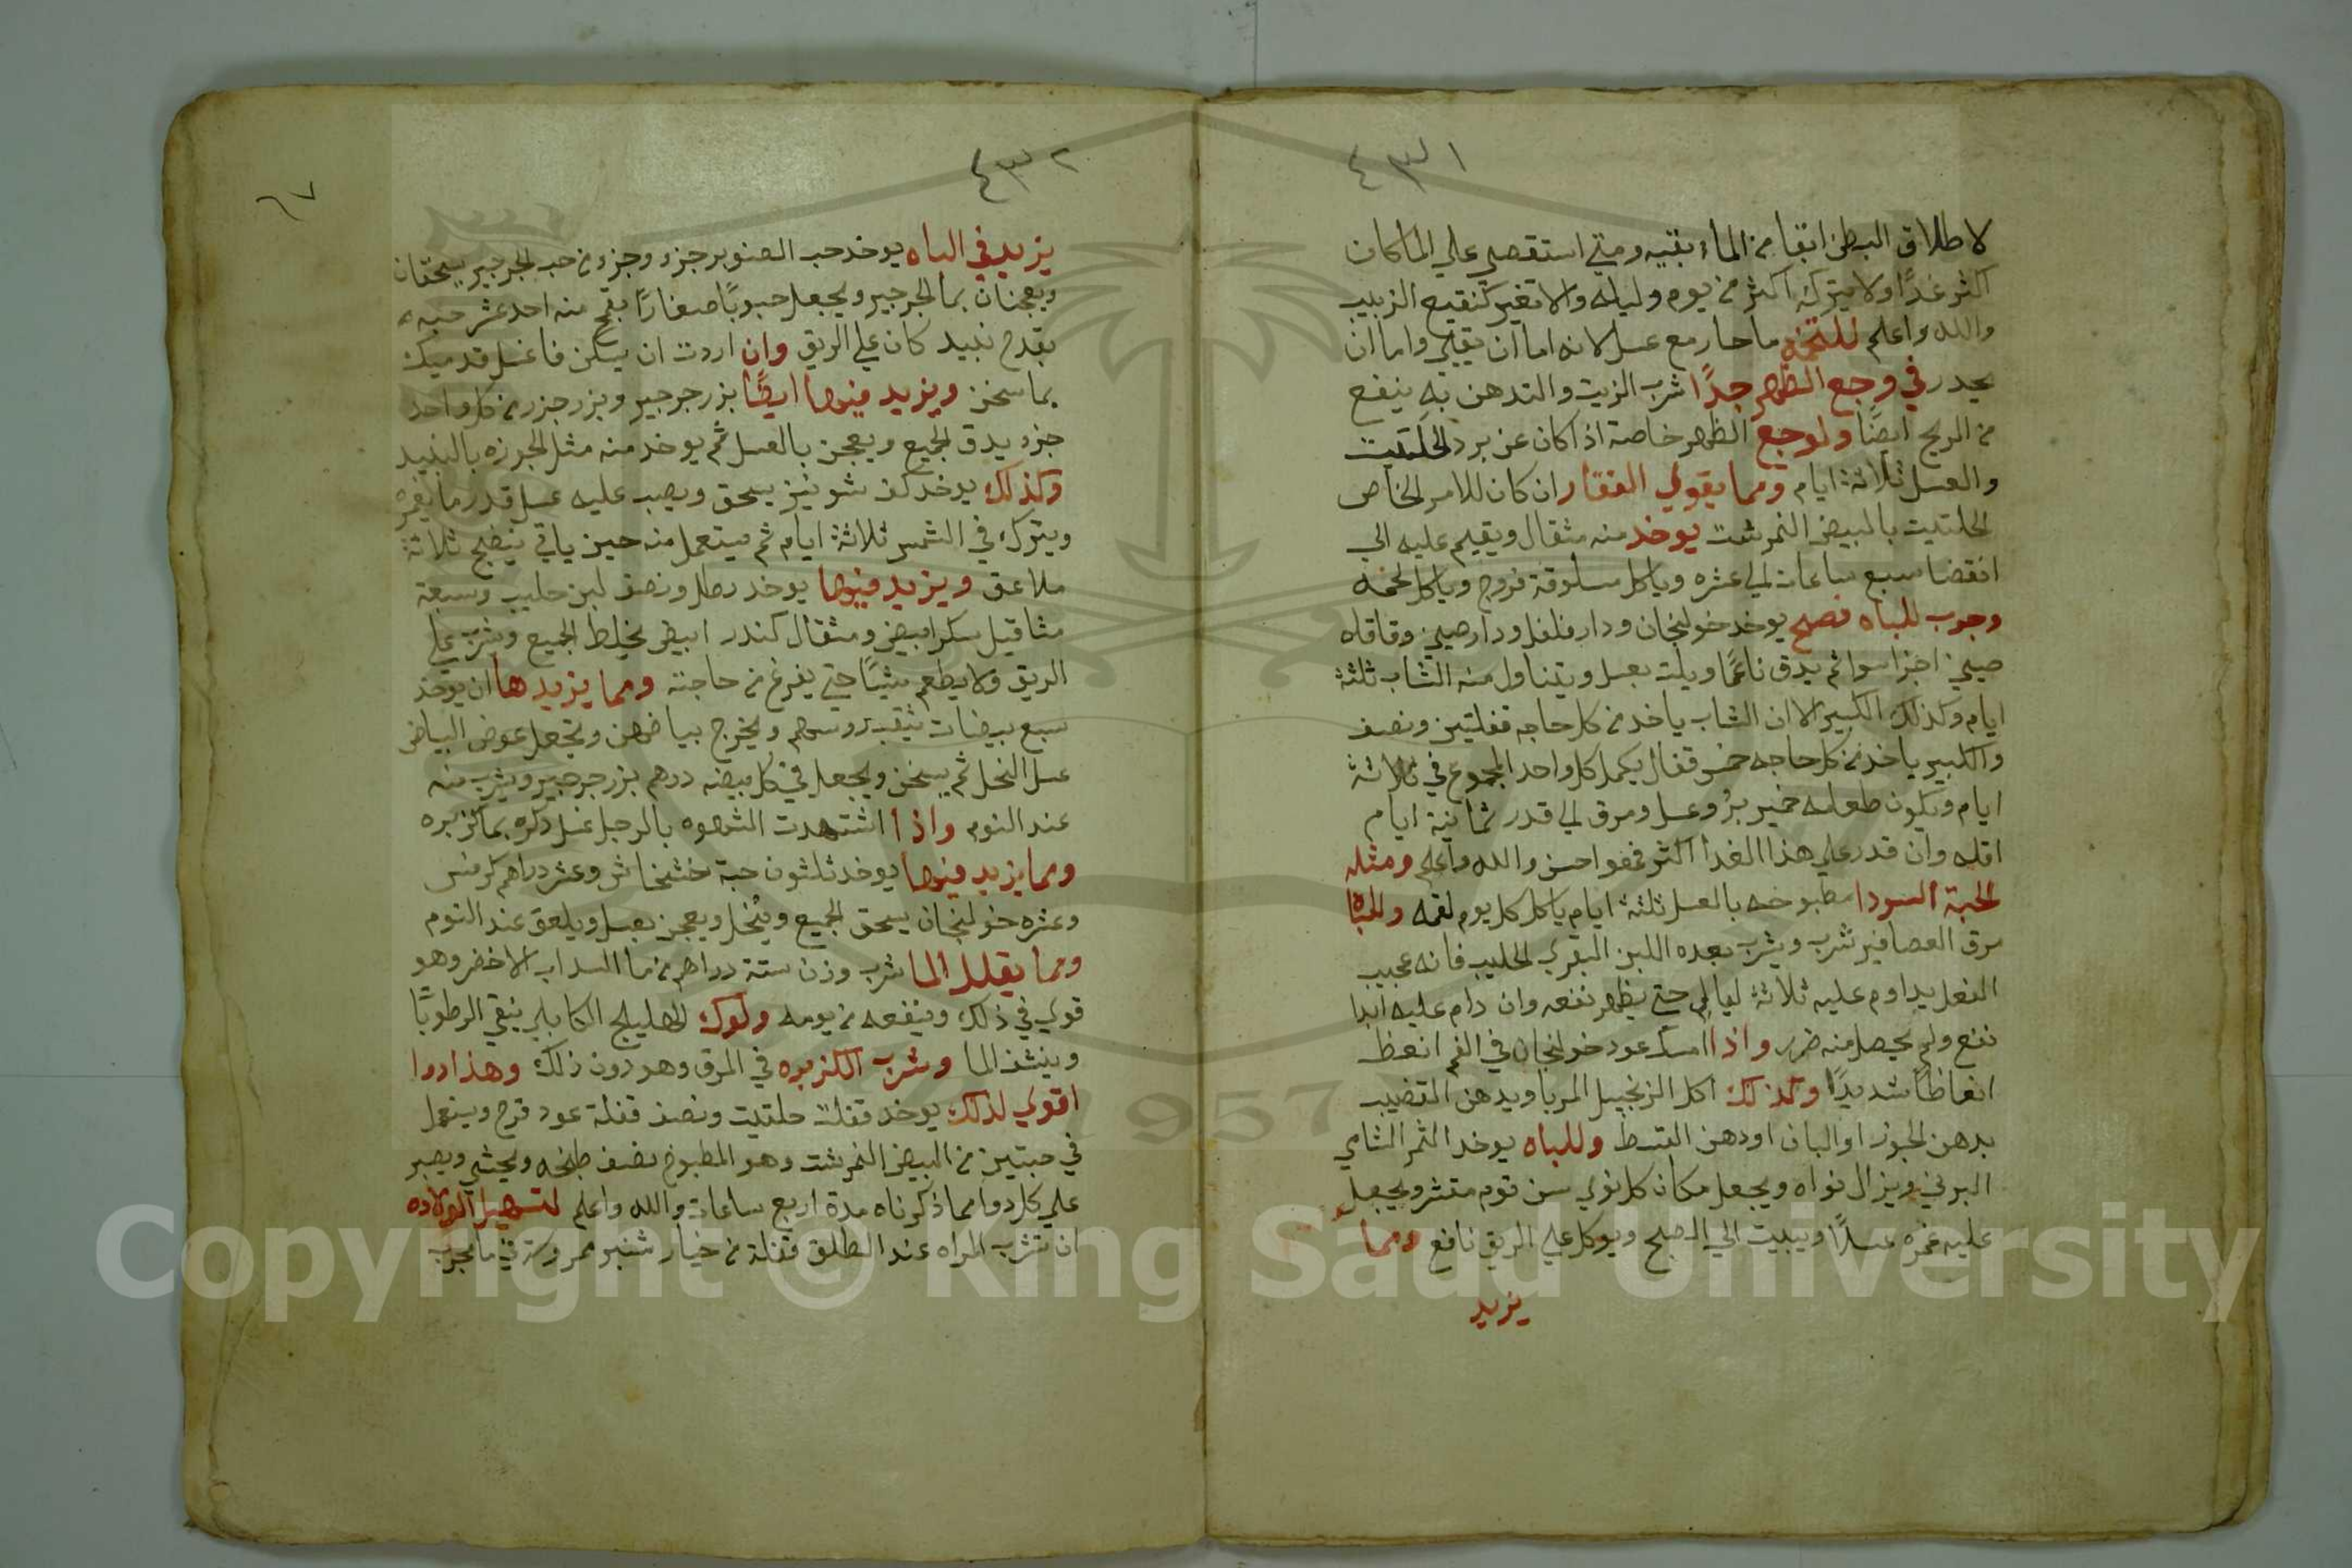 ٤٣١
لاطلاق البطن انقا من الماء بقتيه ومتي استقصي علي الما كان
اكثر غدًا ولا يترك اكثر من يوم وليله والا تغير كنقيع الزبيب
والله واعلم للتخمه ما حار مع عسل لانه اما ان يقيي واما ان
يحدر في وجع الظهر جدًا شرب الزيت والتدهن به ينفع
من الريح ايضًا ولوجع الظهر خاصة اذا كان عن برد الحلتيت
والعسل ثلاثة ايام ومما يقوي الفقار ان كان للامر الخاص
الحلتيت بالبيض النمرشت يوخد منه مثقال ويقيم عليه الي
انقضا سبع ساعات الي عشره وياكل سلوقة فروج وياكل لحمه
وجرب للباه فصح يوخد خولنجان ودارفلفل ودارصيني وقاقله
صيني اجزا سوا ثم يدق ناعمًا ويلت بعسل ويتناول منه الشاب ثلثة
ايام وكذلك الكبير الا ان الشاب ياخد من كل حاجه قفلتين ونصف
والكبير ياخد من كل حاجه خمس قفال يكمل كل واحد المجموع في ثلاثة
ايام ويكون طعامه خمير برُ وعسل ومرق الي قدر ثمانية ايام
اقله وان قدر علي هذا الغدا اكثر فهو احسن والله واعلم ومثله
الحبة السودا مطبوخه بالعسل ثلثة ايام ياكل كل يوم لقمه وللباه
مرق العصافير شرب ويشرب بعده اللبن البقري الحليب فانه عجيب
الفعل يداوم عليه ثلاثة ليالي حتي يظهر نفعه وان دام عليه ابدا
نفع ولم يحصل منه ضرر واذا امسك عود خولنجان في الفم انعظ
انعاظًا شديدًا وكذلك اكل الزنجبيل المربا ويدهن القضيب
بدهن الجوز او البان او دهن القسط وللباه يوخد التمر الشامي
البرني ويزال نواه ويجعل مكان كل نوي سن توم مقشر ويجعل
عليه غمره عسلًا ويبيت الي الصبح ويوكل علي الريق نافع ومما
يزيد
٤٣٢
٦٧
يزيد في الباه يوخد حب الصنوبر جزء وجزء من حب الجرجير يسحقان
ويعجنان بما الجرجير ويجعل حبوبًا صغارًا منه احد عشر حبه
بقدح نبيد كان علي الريق وان اردت ان يسكن فاغسل قدميك
بما سخن ويزيد فيها ايضًا بزر جرجير وبزر جزر من كل واحد
جزء يدق الجميع ويعجن بالعسل ثم يوخد منه مثل الجوزه بالنبيد
وكذلك يوخد كف شونيز يسحق ويصب عليه عسل قدر ما يغمره
ويترك في الشمس ثلاثة ايام ثم يستعمل منه حين ياتي ينضج ثلاثة
ملاعق ويزيد فيها يوخد رطل ونصف لبن حليب وسبعة
مثاقيل سكر ابيض ومثقال كندر ابيض يخلط الجميع ويشرب علي
الريق ولا يطعم شيًا حتي يفرغ من حاجته ومما يزيدها ان يوخد
سبع بيضات يثقب روسهم ويخرج بياضهن وتجعل عوض البياض
عسل النحل ثم يسخن ويجعل في كل بيضه درهم بزر جرجير ويشرب منه
عند النوم واذا اشتهدت الشهوه بالرجل غسل ذكره بما كزبره
ومما يزيد فيها يوخد ثلثون حبة خشخاش وعشر دراهم كرفس
وعشره خولنجان يسحق الجميع ويُنخل ويعجن بعسل ويلعق عند النوم
ومما يقلل الما شرب وزن ستة دراهم من ما السداب الاخضر وهو
قوي في ذلك وينفعه من يومه ولوك الهليلج الكابلي ينقي الرطوبًا
وينشف الما وشرب الكزبره في المرق وهو دون ذلك وهذا دوا
اقوي لذلك يوخد قفلة حلتيت ونصف قفلة عود قرح ويعمل
في حبتين من البيض النمرشت وهو المطبوخ نصف طبخه ويحشي ويصبر
علي كل دوا مما ذكرناه مدة اربع ساعات والله واعلم لتسهيل الولاده
ان تشرب المراه عند الطلق قفلة من خيار شنبر ممروسة في ما مجرب
Copyright © King Saud University
1957